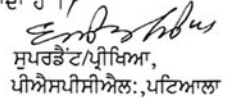 ਸੁਪਰਡੈਂਟ/ਪ੍ਰੀਖਿਆ,
ਪੀਐਸਪੀਸੀਐਲ:,ਪਟਿਆਲਾ